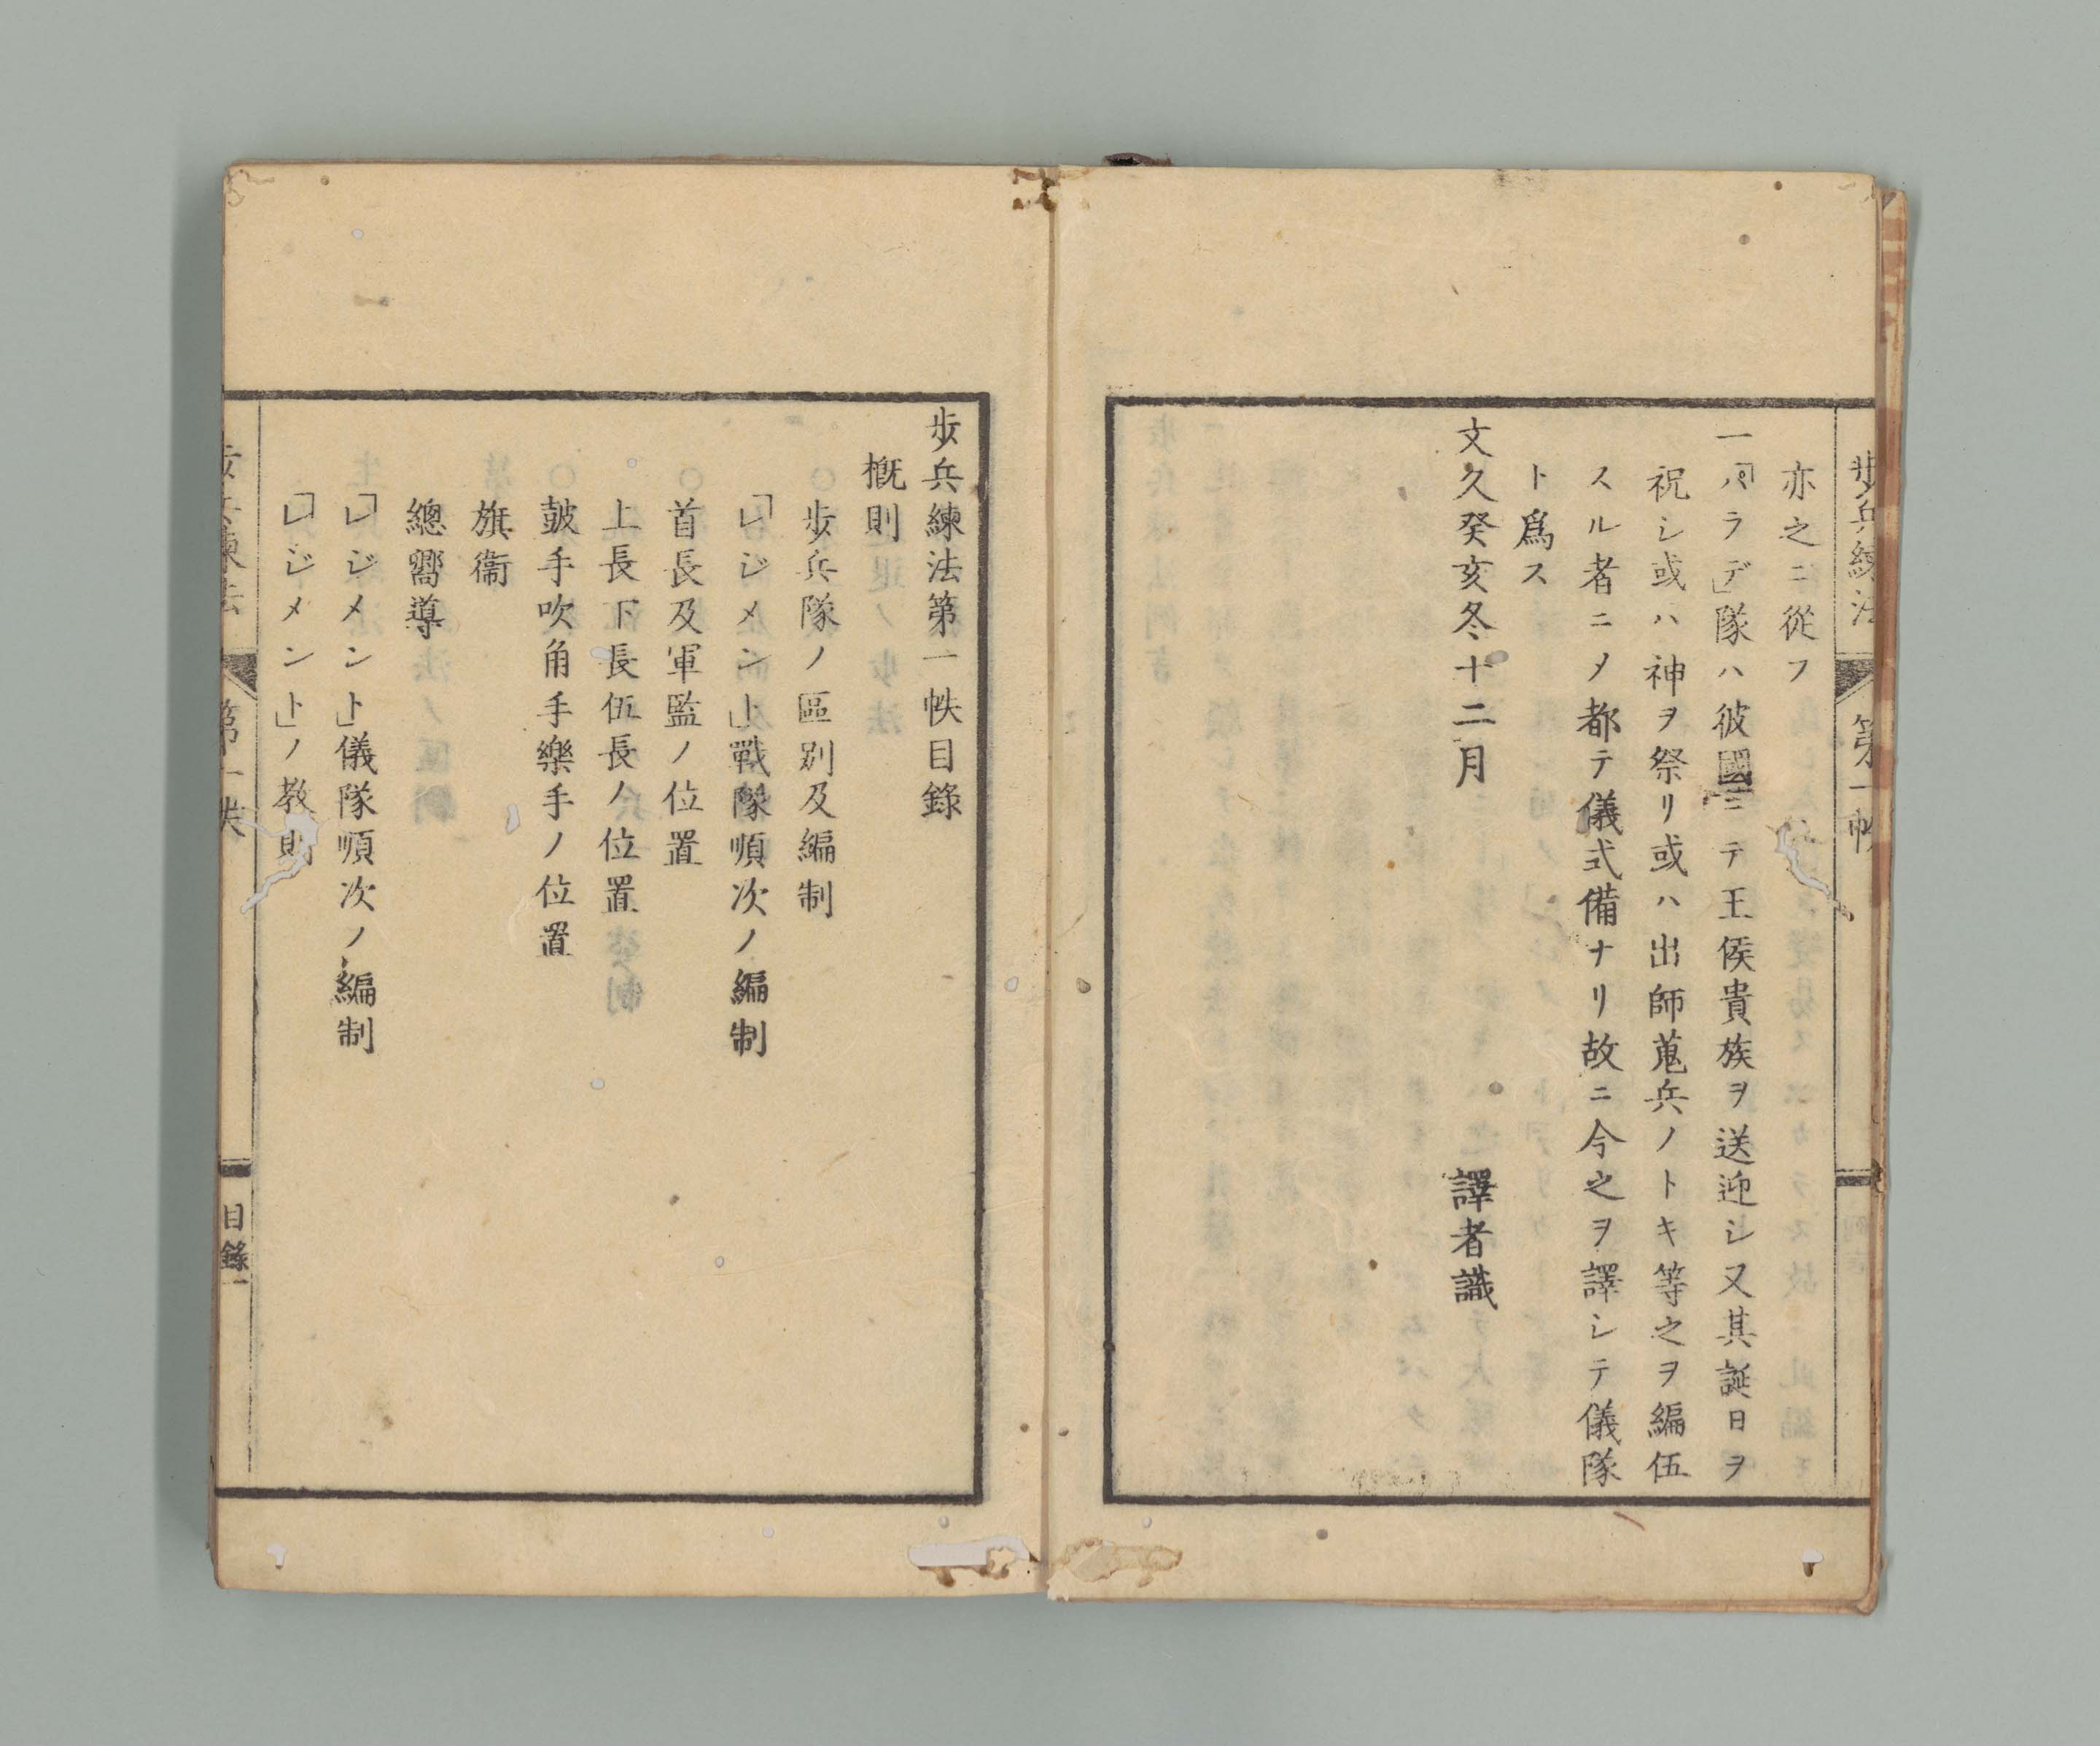 亦之ニ從フ
一「パラデ」隊ハ彼國ニテ王侯貴族ヲ送迎シ又其誕日ヲ
祝シ或ハ神ヲ祭リ或ハ出師蒐兵ノトキ等之ヲ編伍
スル者ニメ都テ儀式備ナリ故ニ今之ヲ譯シテ儀隊
ト爲ス
文久癸亥冬十二月 譯者識
歩兵練法 第一帙
歩兵練法第一帙目錄
概則
歩兵隊ノ區別及編制
「レジメント」戰隊順次ノ編制
首長及軍監ノ位置
上長下長伍長ノ位置
皷手吹角手樂手ノ位置
旗衞
總嚮導
「レジメント」儀隊順次ノ編制
「レジメント」ノ教則
歩兵練法 第一帙 目錄一